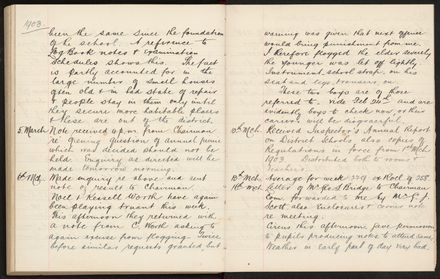 1903
been the same since the foundation
of the school. A reference to
Log Book notes & Examination
Schedules shows this. The fact
is partly accounted for in the
large number of small houses
often old & in bad state of repair
& people stay in them only until
they secure more habitable places
& these are out of the district.
5 March Note received p.m. from Chairman
re evening question of annual picnic
which was decided should not be
held. Enquiry as directed will be
made tomorrow morning.
6th Mch. Made enquiry re above and sent
note of result to Chairman.
Noel & Kessell Worth have again
been playing truant this week
This afternoon they returned with
a note from C. Worth asking to
again excuse from flogging. Twice
before similar requests granted but
warning was given that next offence
would bring punishment from me.
I therefore flogged the elder severely
the younger was let off lightly
Instrument school strap, on his
seat and legs, trousers on.
These two boys are of those
referred to, vide Feb and are
evidently boys & check now or their
careers will be disgraceful.
Mch. Received Inspector's Annual Report
on District Schools also copies of
Regulations in force from 1st Mch
1903. Distributed both to rooms &
teachers.
13th Mch Average for week 229 ex Roll of 258.
16th Mch Letter of Mr Road Bridge to Chairman
Com. forwarded to me by Mr G. J.
Scott, also Endorsement & cover note
re meeting.
Circus this afternoon gave permission
to pupils producing notes to attend same
Weather in early part of day very bad.